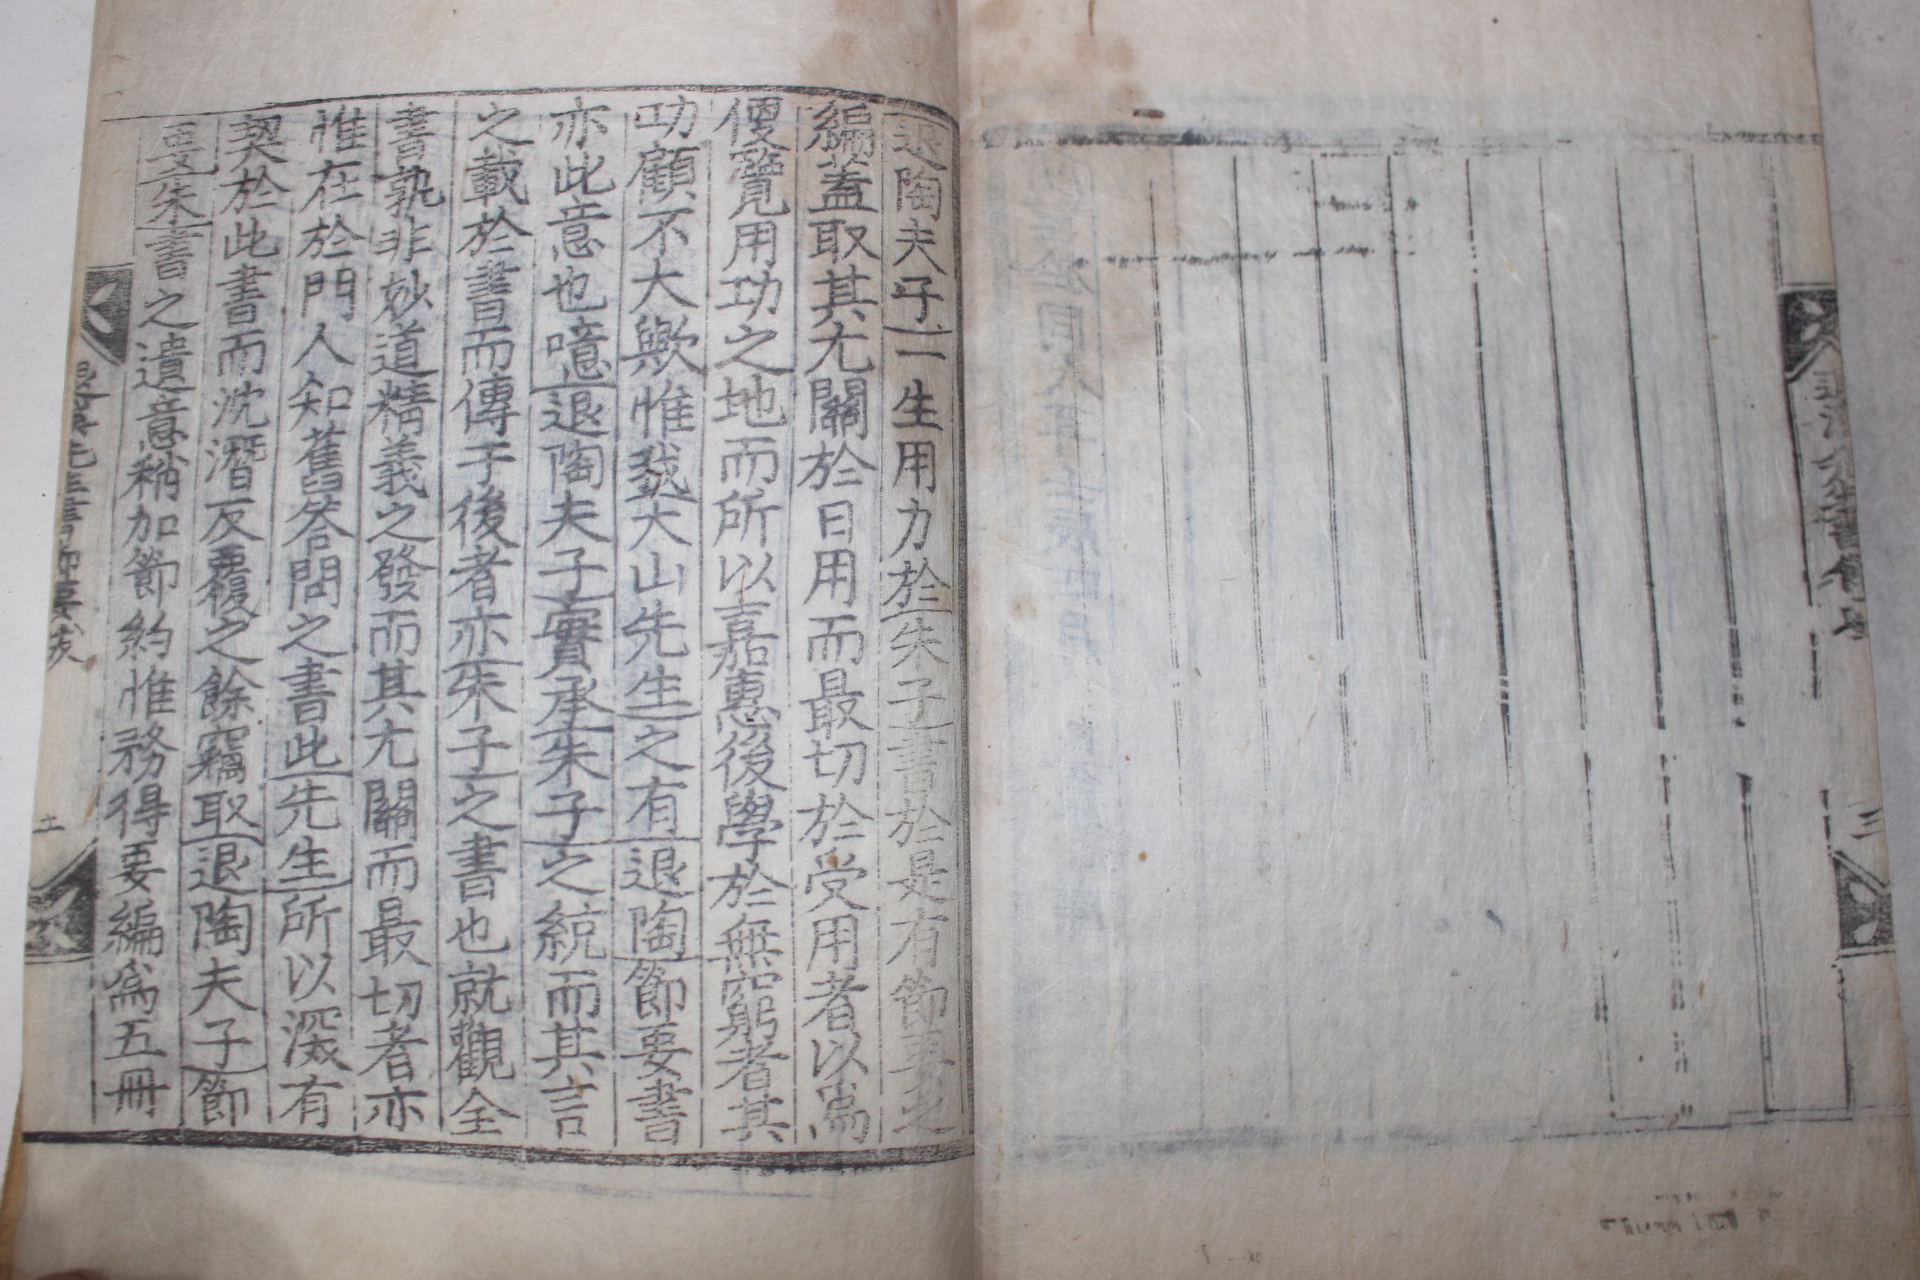 退陶夫子一生用力於朱子書於是有節要之
編蓋取其尤關於日用而最切於受用者以爲
便覽用功之地而所以嘉惠後學於無窮者其
功顧不大歟惟我大山先生之有退陶節要書
亦此意也噫退陶夫子實承朱子之統而其言
之載於書而傳于後者亦朱子之書也就觀全
書孰非妙道精義之發而其尤關而最切者亦
惟在於門人知舊答問之書此先生所以深有
契於此書而沈潛反覆之餘竊取退陶夫子節
要朱書之遺意稍加節約惟務得要編爲五冊
先生書節要跋
三